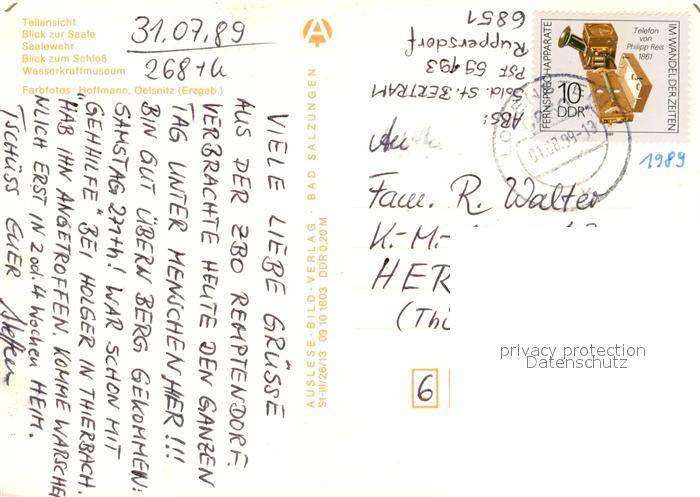 Teilansicht
Blick zur Saale
Saalewehr
Blick zum Schloß
Wasserkraftmuseum
Farbfotos: Hoffmann, Oelsnitz (Erzgeb.)
31.07.89
268+h
VIELE LIEBE GRÜSSE
AUS DER ZBO REMPTENDORF.
VERBRACHTE HEUTE DEN GANZEN
TAG UNTER MENSCHEN, HIER!!!
BIN GUT ÜBERN BERG GEKOMMEN:
SAMSTAG 271+h! WAR SCHON MIT
"GEHHILFE BEI HOLGER IN THIERBACH.
HAB IHN ANGETROFFEN. KOMME WARSCHEI
NLICH ERST IN 2 od. 4 Wochen HEIM.
TSCHÜSS EUER Steffen
AUSLESE-BILD-VERLAG · BAD SALZUNGEN
St-III/26/13 09 10 1803 DDR 0,20 M
ABS:
Sold. St. BERTRAM
PSF 59 493
Ruppersdorf
6851
FERNSPRECHAPPARATE
IM WANDEL DER ZEITEN
Telefon von
Philipp Reis
1861
10
DDR
01.08.89-13
1989
Fam. R. Walter
K.-M.-
HER
(Thü
6
privacy protection
Datenschutz